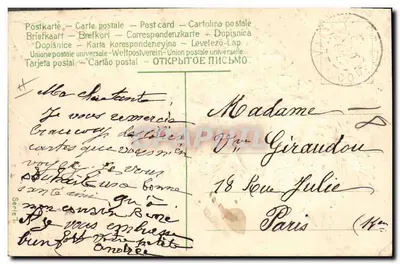 Postkarte – Carte postale – Post card – Cartolina postale
Briefkaart – Brefkort – Correspondenzkarte – Dopisnica
Dopisnice – Karta korespondencyjna – Levelező-Lap
Unione postale universale – Weltpostverein – Union postale universelle
Tarjeta postal – Cartão postal – ОТКРЫТОЕ ПИСЬМО
Ma chère tante
Je vous remercie
beaucoup de la
cartes que vous m'en
voyez. Je vous
souhaite une bonne
santé ainsi qu'à
mon cousin René
Je vous embrasse
bien
votre petite
Andrée
Série
Madame
Vve Giraudou
18 Rue Julie
Paris